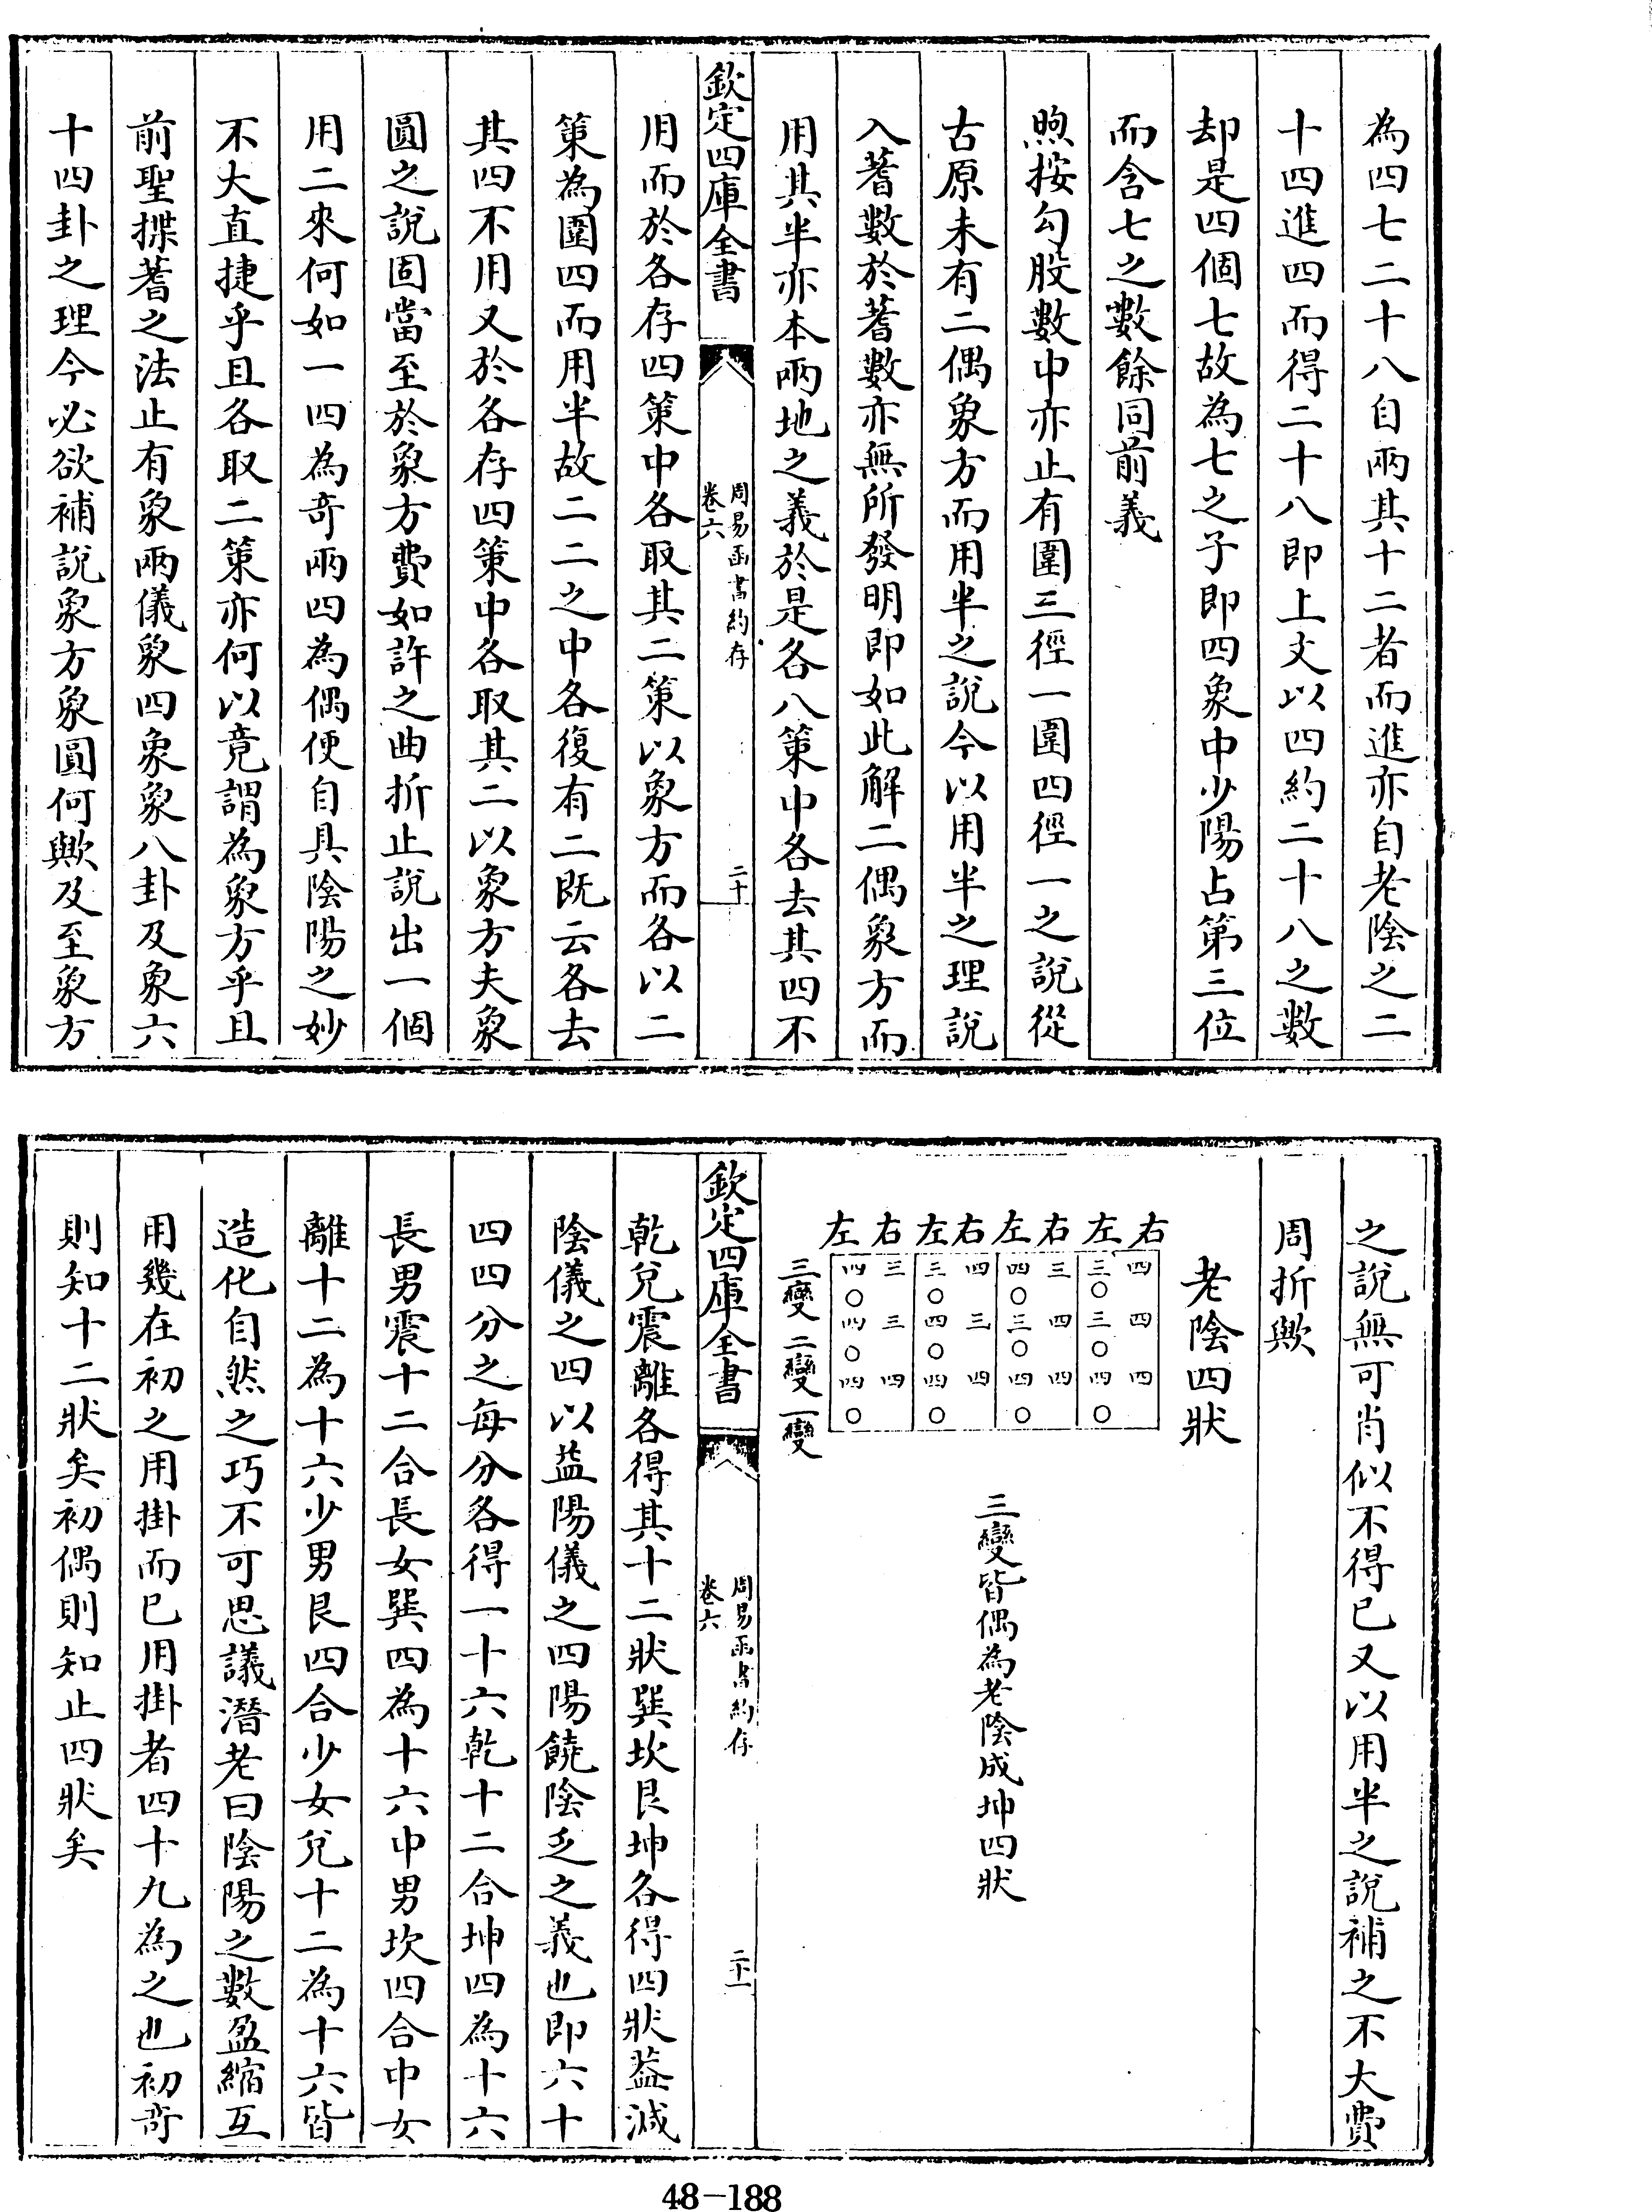 為四七二十八自兩其十二者而進亦自老陰之二
十四進四而得二十八即上文以四約二十八之數
却是四個七故為七之子即四象中少陽占第三位
而含七之數餘同前義
煦按勾股數中亦止有圍三徑一圍四徑一之說從
古原未有二偶象方而用半之說今以用半之理說
入蓍數於蓍數亦無所發明即如此解二偶象方而
用其半亦本兩地之義於是各八策中各去其四不
欽定四庫全書
周易函書約存
卷六
二十
用而於各存四策中各取其二策以象方而各以二
策為圍四而用半故二二之中各復有二既云各去
其四不用又於各存四策中各取其二以象方夫象
圓之說固當至於象方費如許之曲折止說出一個
用二來何如一四為奇兩四為偶便自具陰陽之妙
不大直捷乎且各取二策亦何以竟謂為象方乎且
前聖揲蓍之法止有象兩儀象四象象八卦及象六
十四卦之理今必欲補說象方象圓何歟及至象方
之說無可肖似不得已又以用半之說補之不大費
周折歟
老陰四狀
右左右左右左右左
四三三四四三三四
〇〇〇〇
四三四三三四三四
〇〇〇〇
四四四四四四四四
〇〇〇〇
三變二變一變
三變皆偶為老陰成坤四狀
欽定四庫全書
周易函書約存
卷六
二十一
乾兌震離各得其十二狀巽坎艮坤各得四狀葢減
陰儀之四以益陽儀之四陽饒陰乏之義也即六十
四四分之每分各得一十六乾十二合坤四為十六
長男震十二合長女巽四為十六中男坎四合中女
離十二為十六少男艮四合少女兌十二為十六皆
造化自然之巧不可思議潛老曰陰陽之數盈縮互
用幾在初之用掛而已用掛者四十九為之也初奇
則知十二狀矣初偶則知止四狀矣
48-188